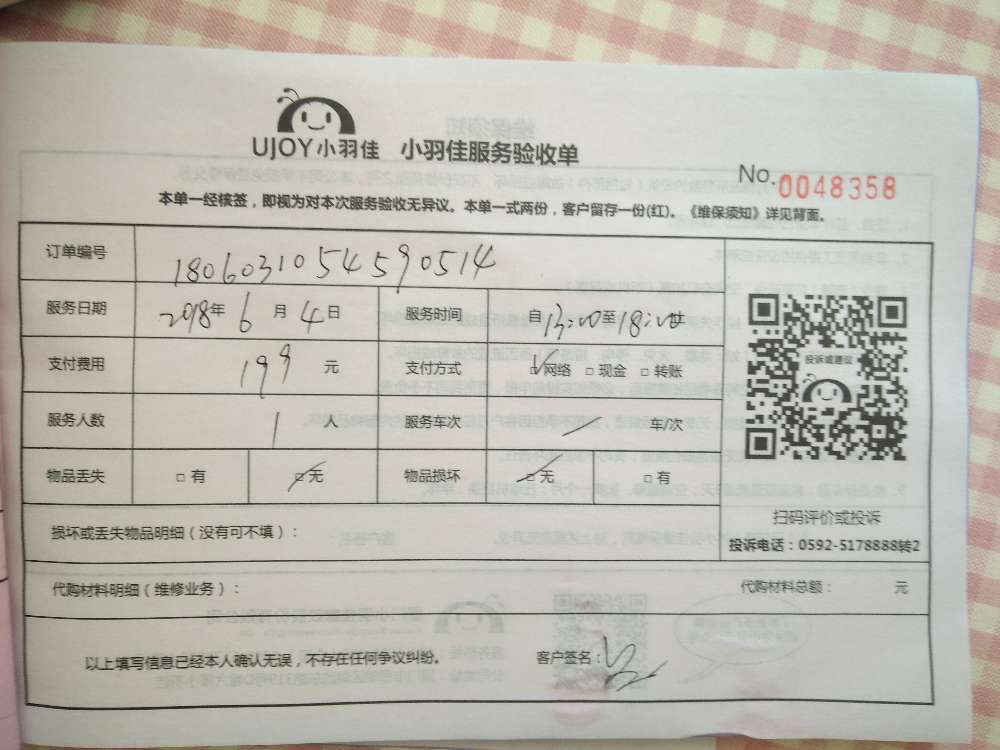 UJOY小羽佳 小羽佳服务验收单
No.0048358
本单一经核签，即视为对本次服务验收无异议。本单一式两份，客户留存一份(红)。《维保须知》详见背面。
订单编号 1806031054590514
服务日期 2018年 6 月 4 日 服务时间 自 13:00 至 18:00 止
投诉或建议
支付费用 199 元 支付方式 □网络 □现金 □转账
服务人数 1 人 服务车次 / 车/次
物品丢失 □有 □无 物品损坏 □无 □有
扫码评价或投诉
损坏或丢失物品明细（没有可不填）：
投诉电话：0592-5178888转2
代购材料明细（维修业务）： 代购材料总额： 元
以上填写信息已经本人确认无误，不存在任何争议纠纷。 客户签名：